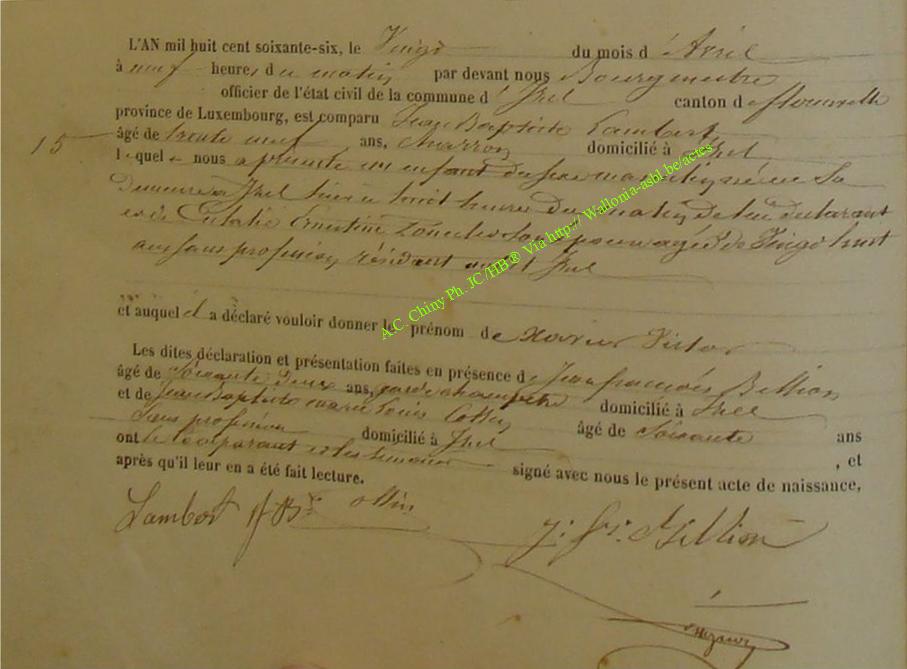 L'AN mil huit cent soixante-six, le Vingt du mois d'Avril
à neuf heures du matin par devant nous Bourgmestre
officier de l'état civil de la commune d'Izel canton de florenville
province de Luxembourg, est comparu Jean Baptiste Lambert
15
âgé de trente neuf ans, charron domicilié à Izel
lequel nous a présenté un enfant du sexe masculin, né en Sa
Demeure à Izel huit heures du matin de lui déclarant
et de Eulalie Ernestine son épouse agée de Vingt huit
ans sans profession, résidant Izel
et auquel il a déclaré vouloir donner le prénom de Xavier Victor
Les dites déclaration et présentation faites en présence de Jean françois Billion
âgé de Soixante deux ans, garde champêtre domicilié à Izel
et de Jean Baptiste marie Louis âgé de Soixante ans
Sans profession domicilié à Izel , et
ont le comparant et les témoins signé avec nous le présent acte de naissance,
après qu'il leur en a été fait lecture.
Lambert J B
A.C. Chiny Ph. JC /HB® Via http:// Wallonia-asbl.be/actes